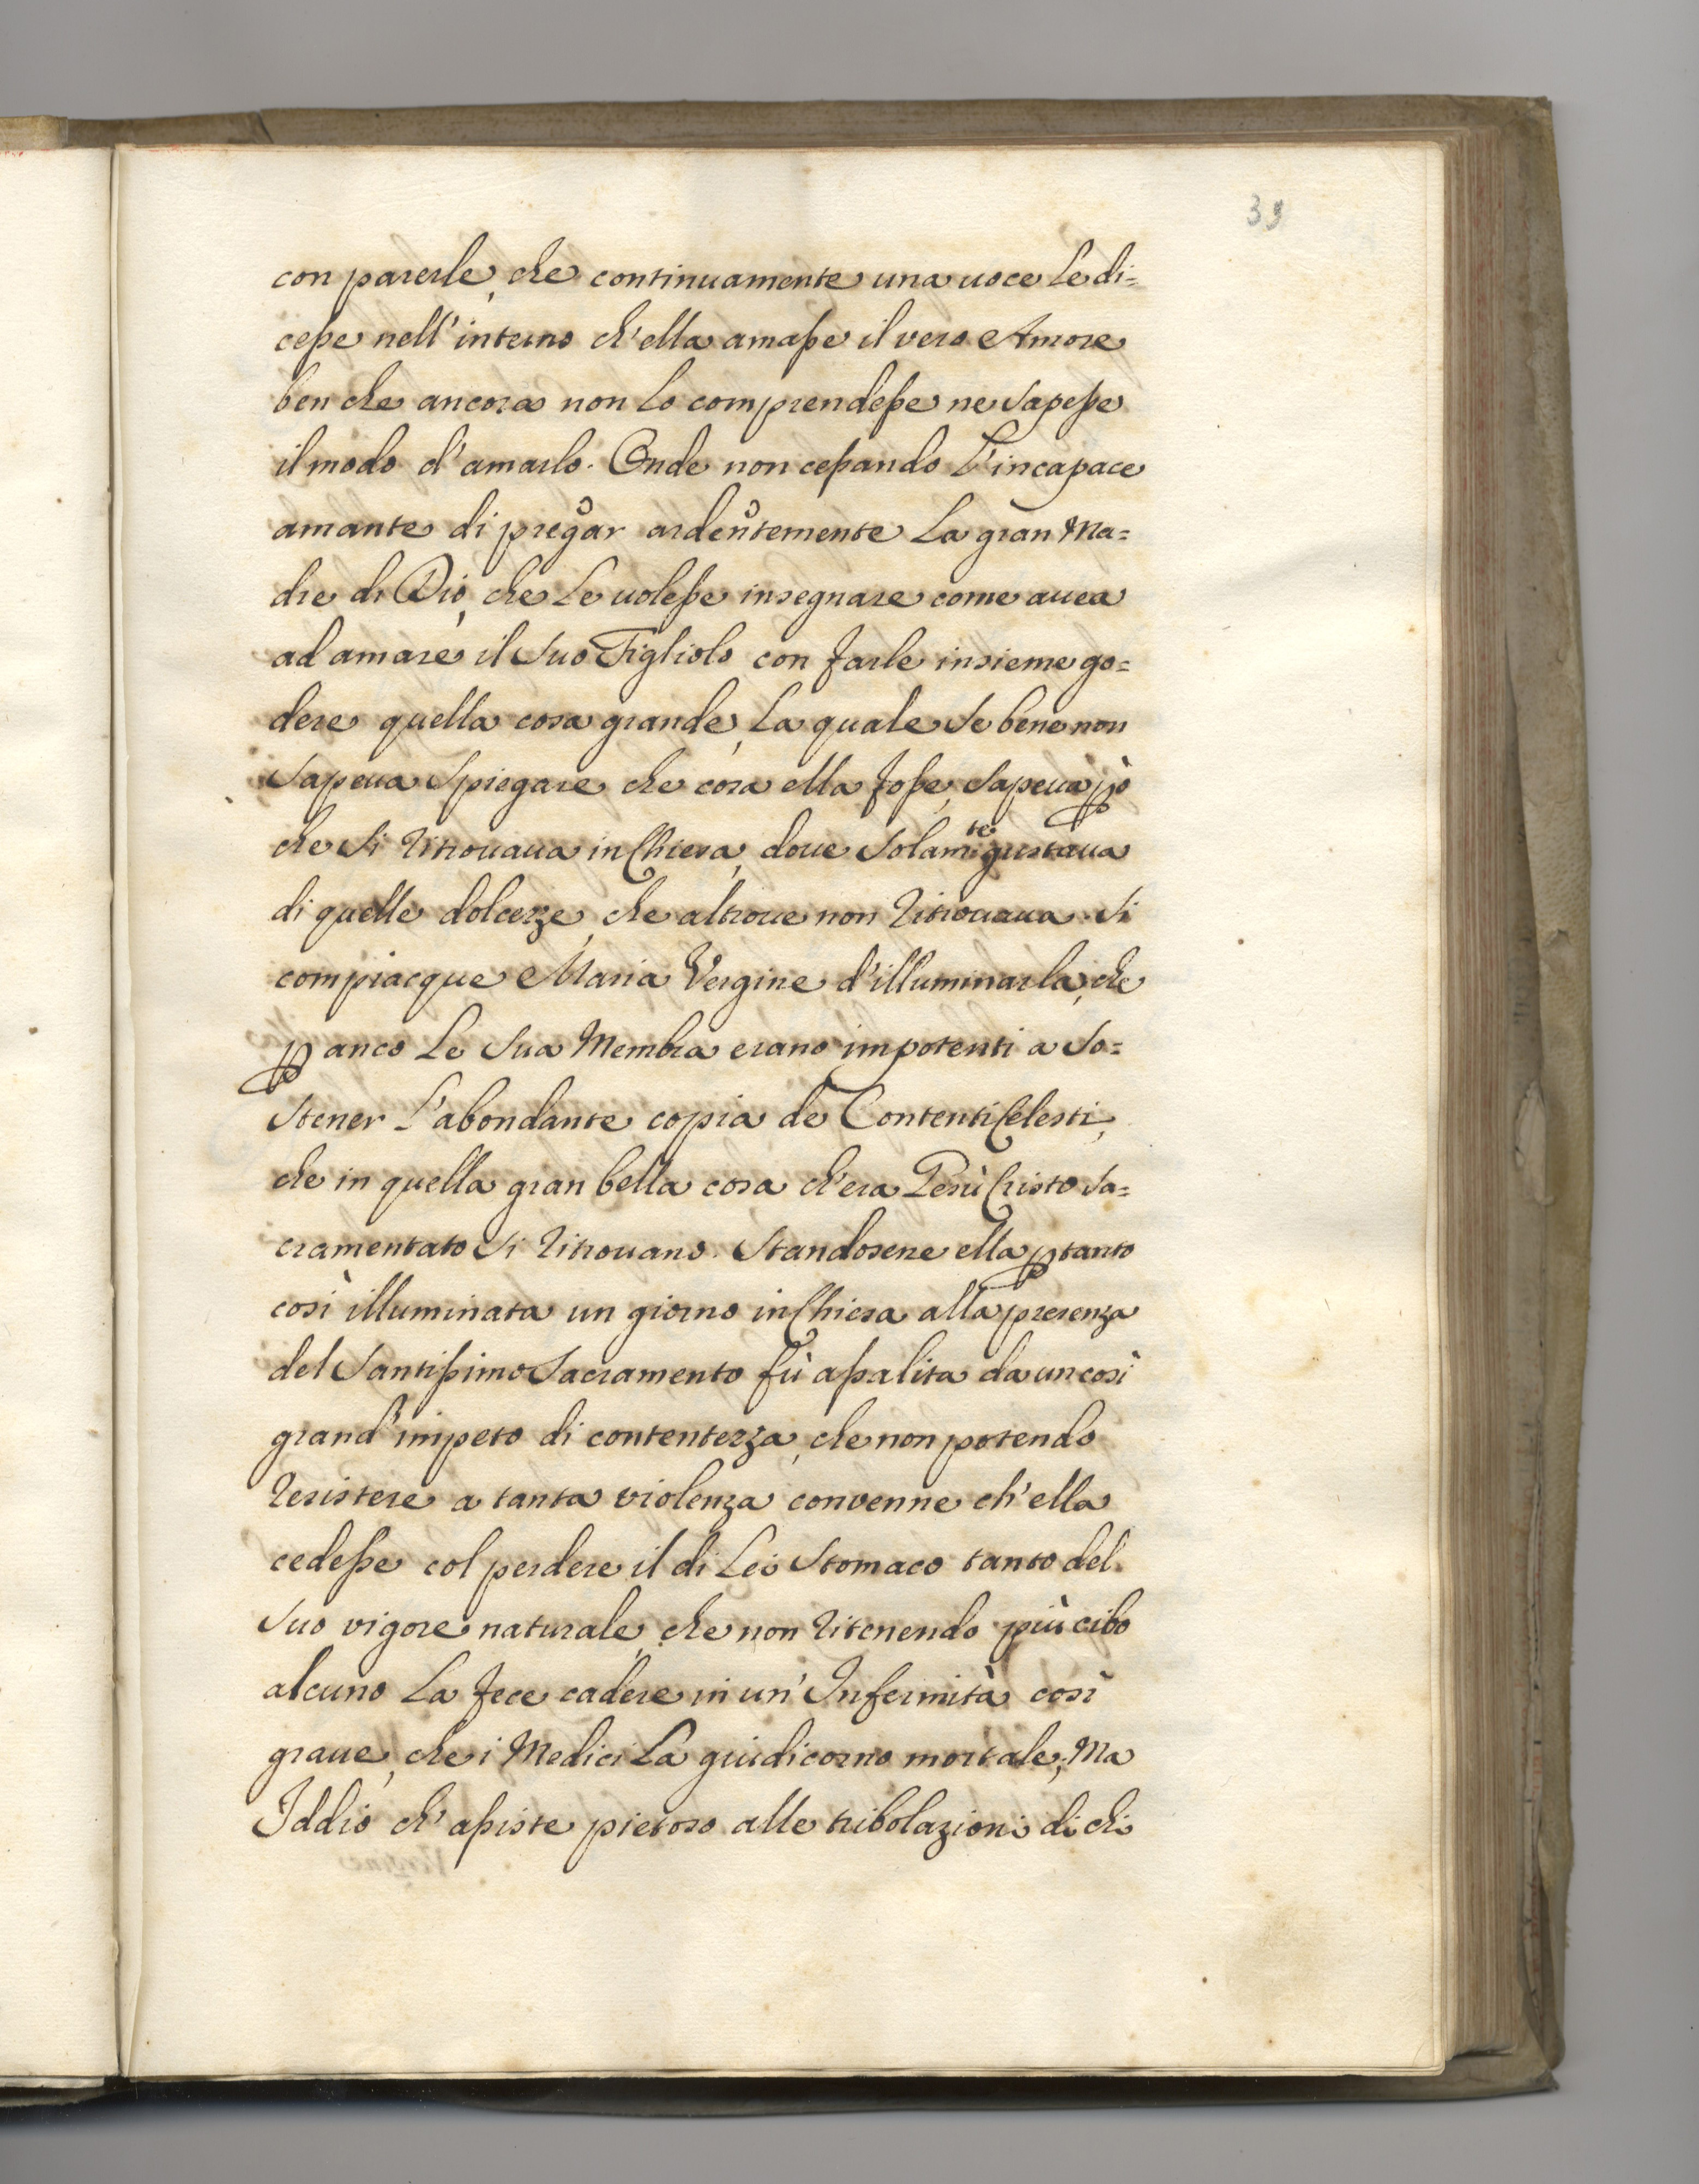 39
con parerle, che continuamente una uoce Le di=
cesse nell'interno ch'ella amasse il vero Amore
ben che ancora non Lo comprendesse ne sapesse
il modo d'amarlo. Onde non cessando L'incapace
amante di pregar ardentemente La gran Ma=
dre di Dio, che Le uolesse insegnare come auea
ad amare il suo Figliolo con farle insieme go=
dere quella cosa grande, La quale se bene non
sapeua spiegare che cosa ella fosse, sapeua ꝑò
che si ritrouaua in Chiesa, doue solamte gustaua
di quelle dolcezze, che altroue non ritrouaua. Si
compiacque Maria Vergine d'illuminarla, che
ꝑ anco Le sua Membra erano impotenti a so=
stener L'abondante copia de Contenti Celesti,
che in quella gran bella cosa ch'era Gesù Cristo Sa=
cramentato si ritrouano. Standosene ella ꝑtanto
così illuminata un giorno in Chiesa alla presenza
del Santissimo Sacramento fù assalita da un così
grand'impeto di contentezza, che non potendo
resistere a tanta violenza convenne ch'ella
cedesse col perdere il di Lei stomaco tanto del
suo vigore naturale, che non ritenendo più cibo
alcuno La fece cadere in un'Infermità così
graue, che i Medici La giudicorno mortale; Ma
Iddio ch'assiste pietoso alle tribolazioni di chi